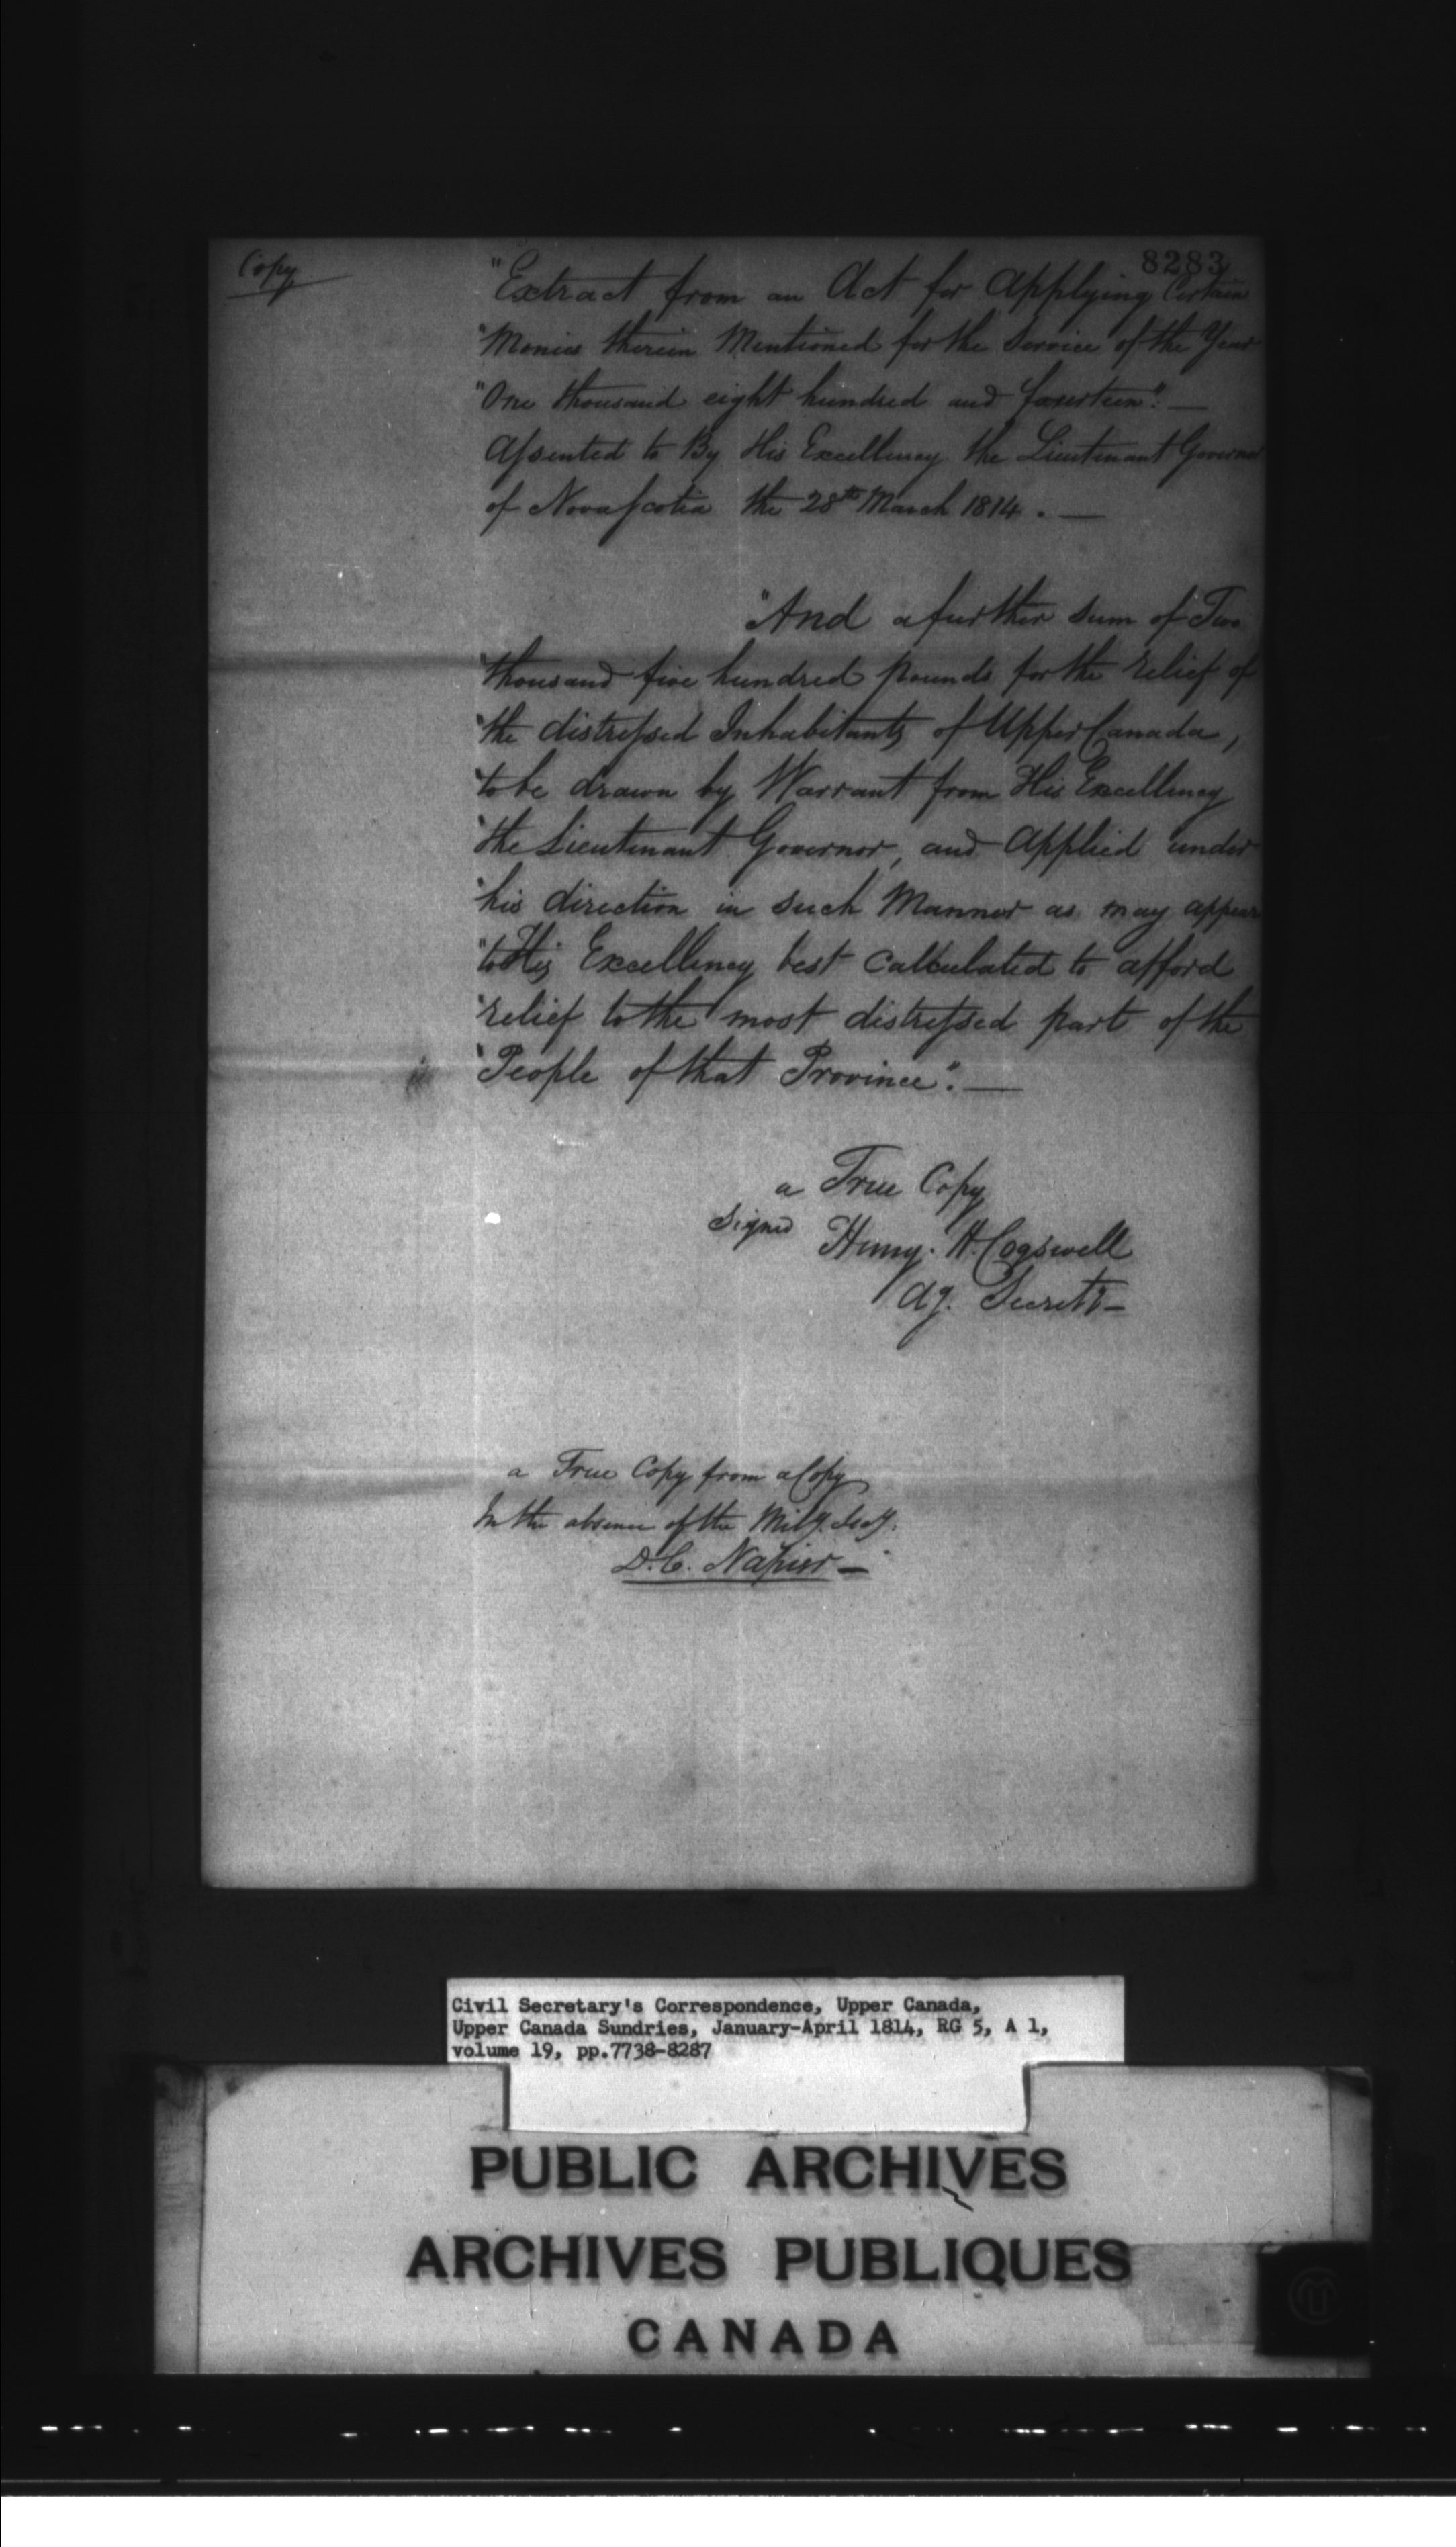 Copy
8283
"Extract from an Act for Applying Certain
"Monies therein Mentioned for the Service of the Year
"One thousand eight hundred and fourteen".—
Assented to By His Excellency the Lieutenant Governor
of Nova Scotia the 28th March 1814.—
"And a further Sum of Two
"thousand five hundred pounds for the relief of
"the distressed Inhabitants of Upper Canada,
"to be drawn by Warrant from His Excellency
"the Lieutenant Governor, and Applied under
"his direction in such Manner as may appear
"to His Excellency best Calculated to afford
"relief to the most distressed part of the
"People of that Province".—
a True Copy
Signed Henry. H. Cogswell
Secrety—
a True Copy from a Copy
In the absence of the Mily. Secy.
D.C. Napier—
Civil Secretary's Correspondence, Upper Canada,
Upper Canada Sundries, January-April 1814, RG 5, A 1,
volume 19, pp.7738-8287
PUBLIC ARCHIVES
ARCHIVES PUBLIQUES
CANADA